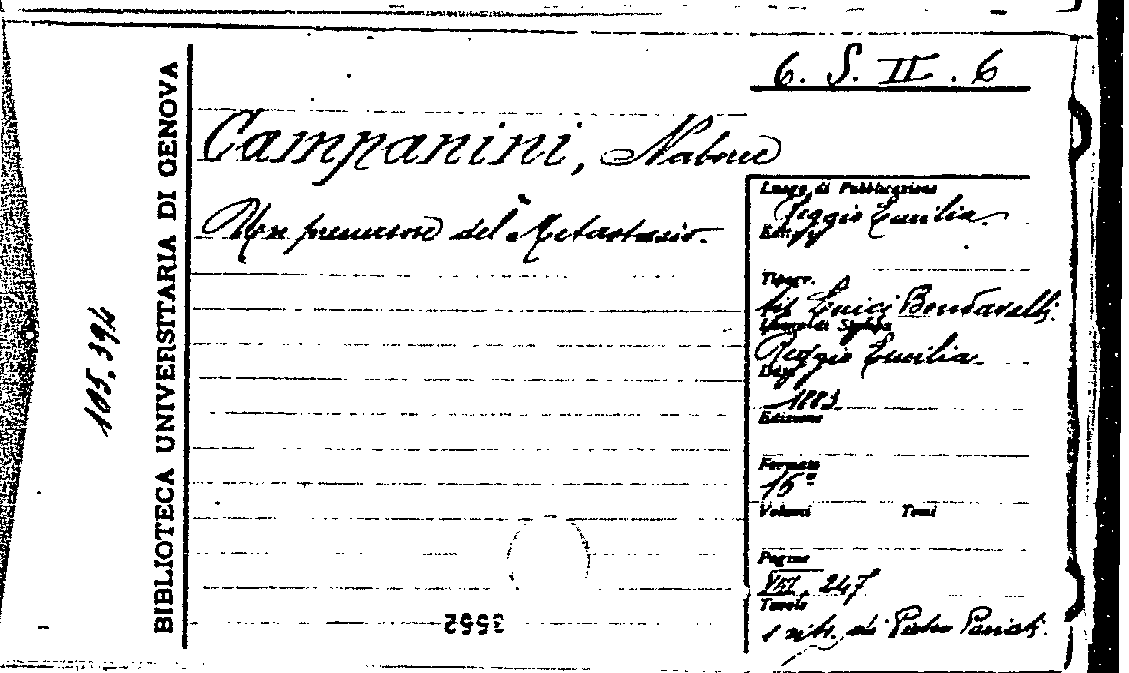 6. S. II. 6
BIBLIOTECA UNIVERSITARIA DI GENOVA
105,394
Campanini, Naborre
Un precursore del Metastasio.
Luogo di Pubblicazione
Reggio Emilia
Editore
Tipogr.
tip. Luigi Bondavalli.
Luogo di Stampa
Reggio Emilia.
Data
1883
Edizione
Formato
16º
Volumi Tomi
Pagine
VII, 247
Tavole
1 ritr. di Pietro Pariati.
3552